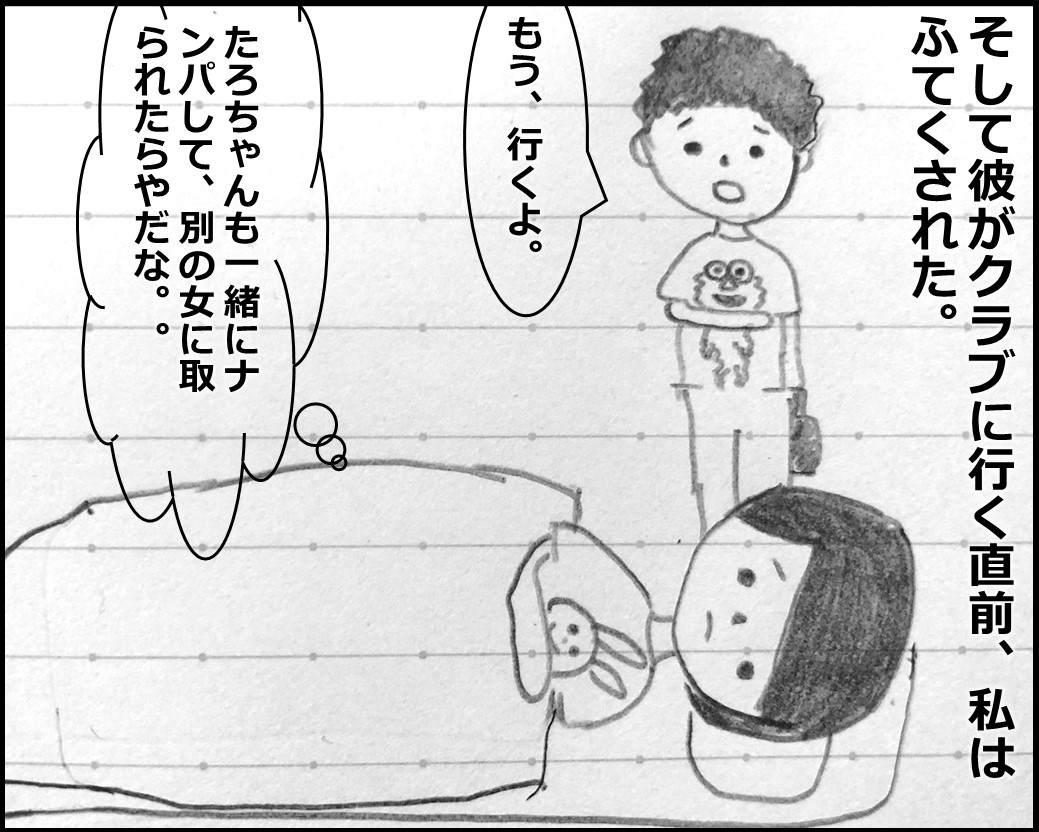 そして彼がクラブに行く直前、私は
ふてくされた。
もう、行くよ。
たろちゃんも一緒にナ
ンパして、別の女に取
られたらやだな。。